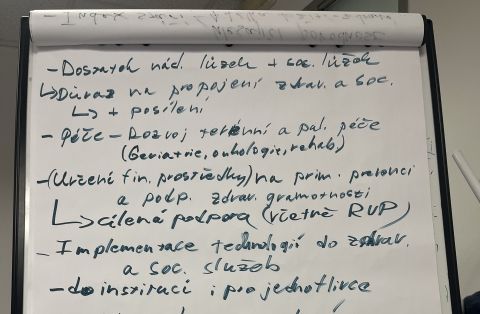 - Dostatek nád. lůžek + soc. lůžek
↳ Důraz na propojení zdrav. a soc.
↳ + posílení
- Péče - Rozvoj terénní a pal. péče
(Geriatrie, onkologie, rehab)
- (Určení fin. prostředky) na prim. prevenci
a podp. zdrav. gramotnosti
↳ cílená podpora (včetně RVP)
- Implementace technologií do zdrav.
a soc. služeb
- do institucí i pro jednotlivce